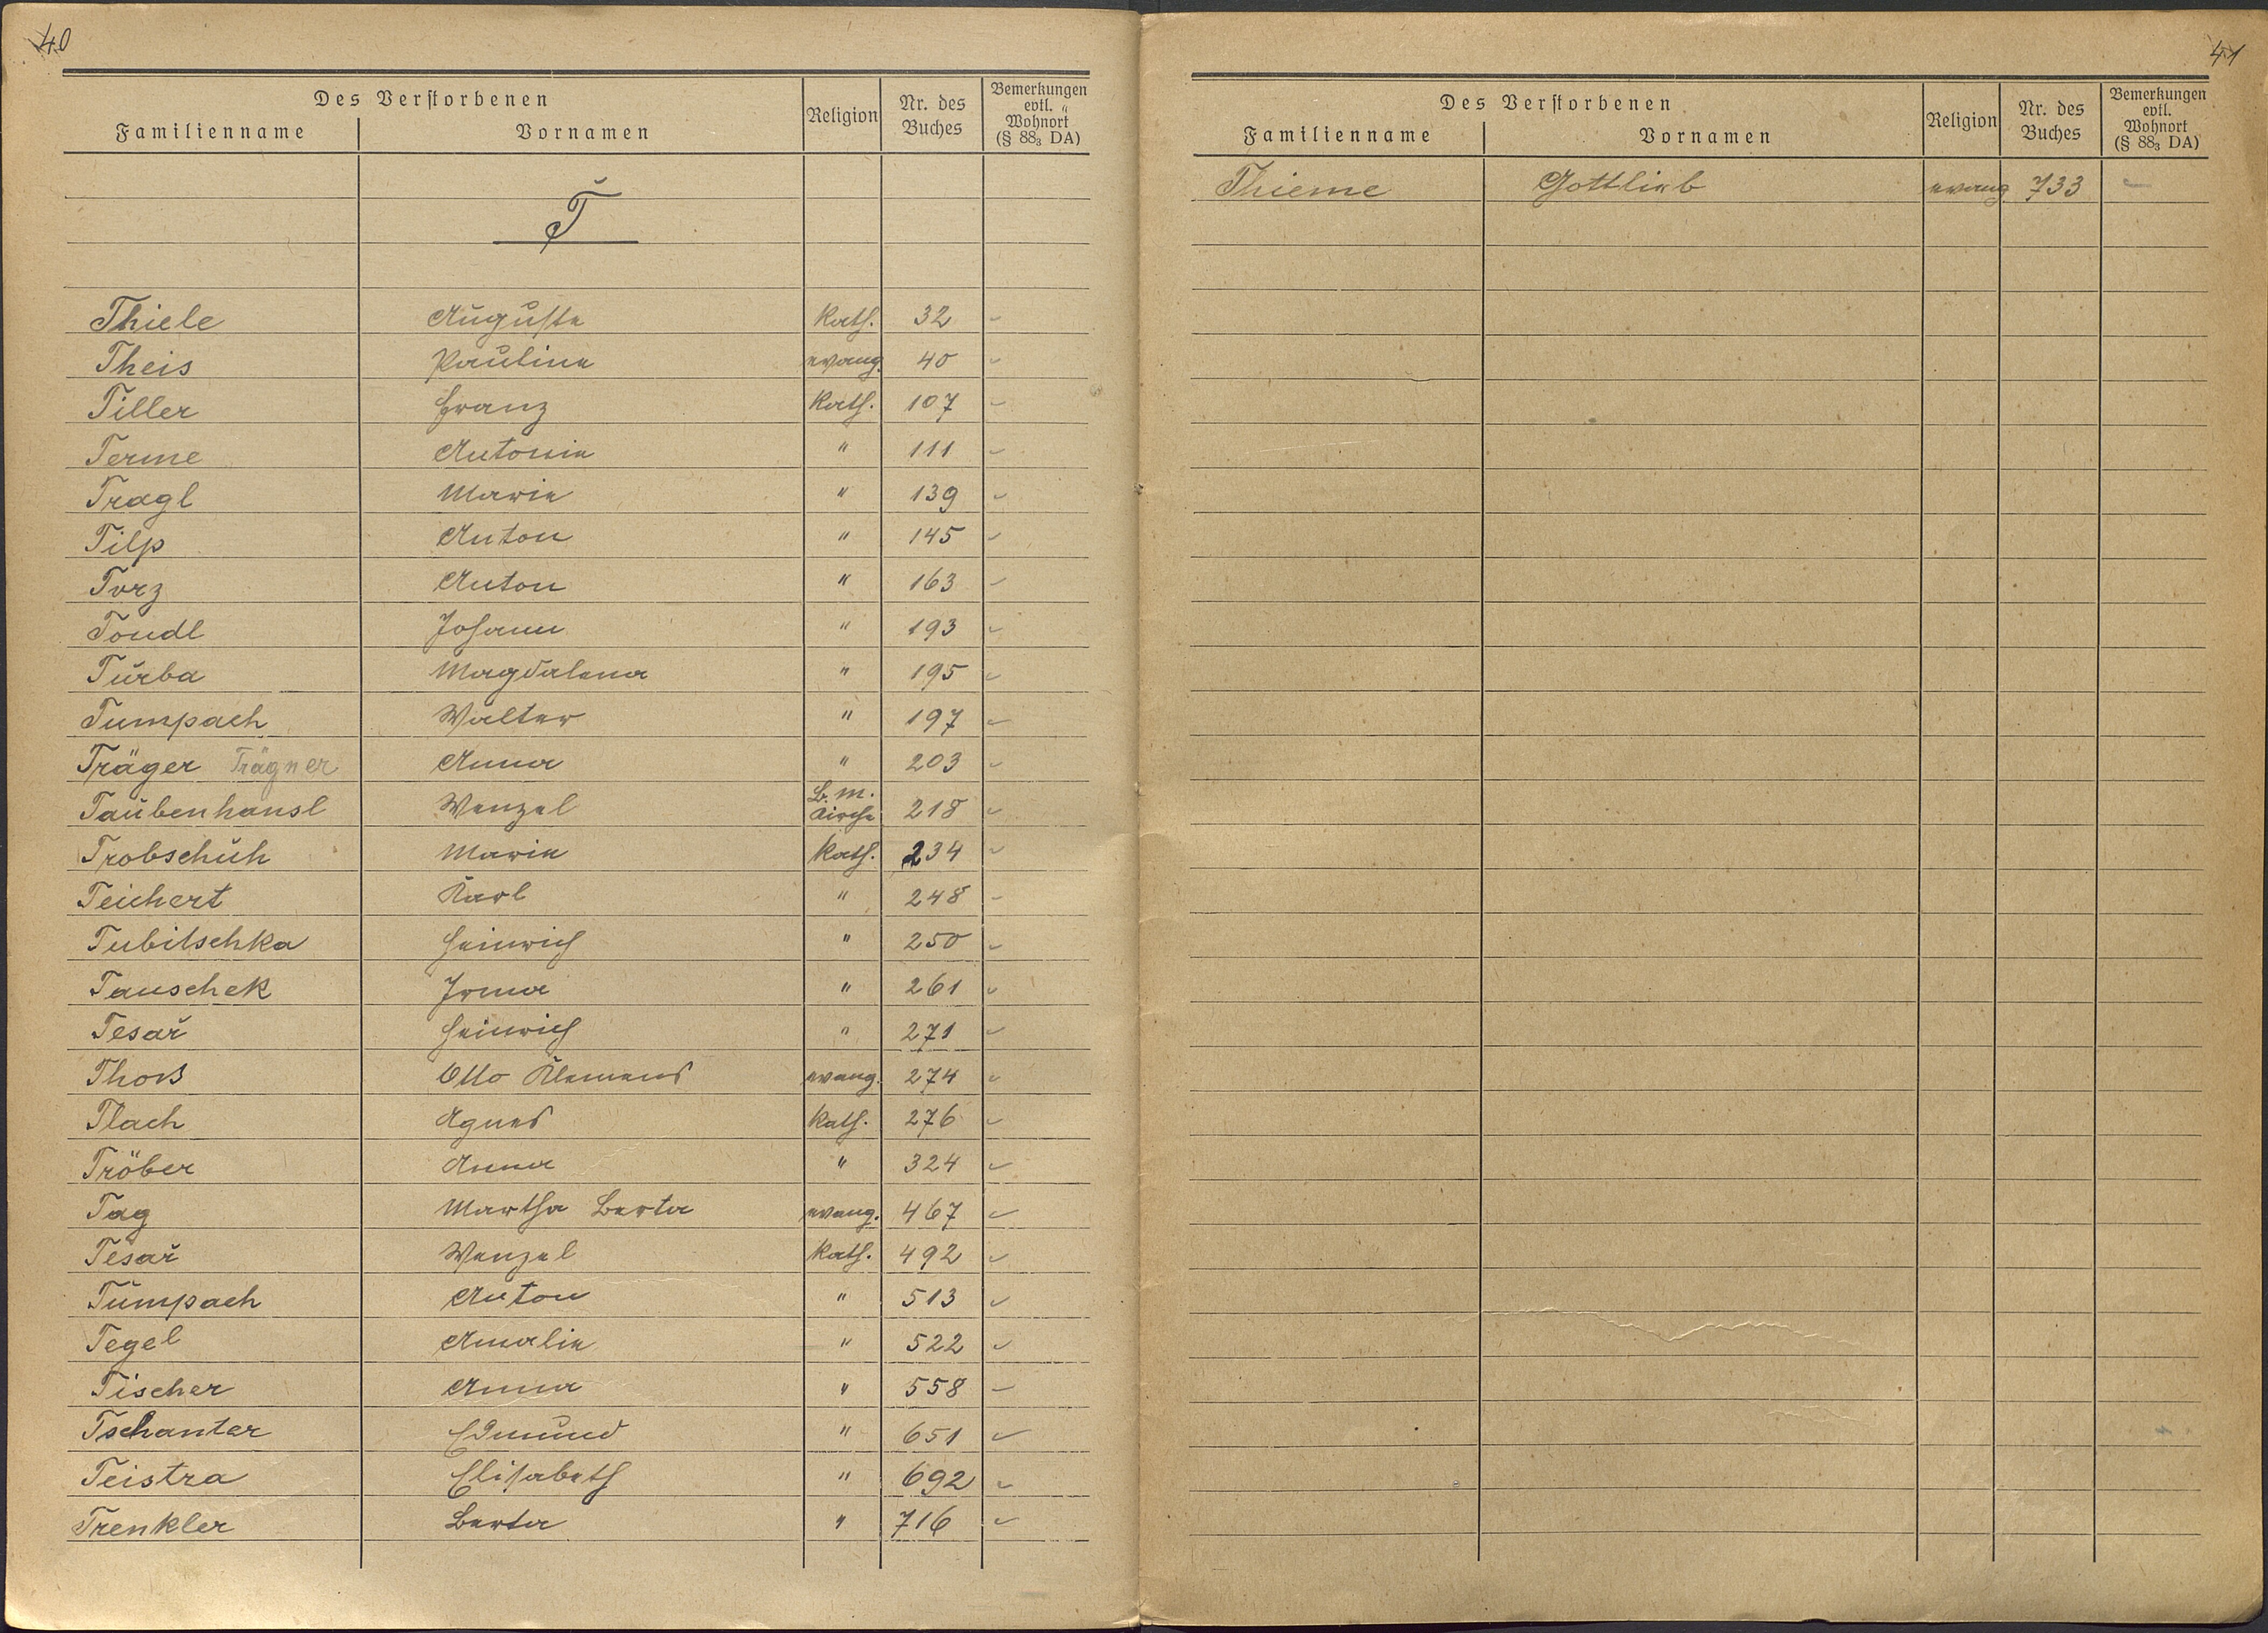 40
Des Verstorbenen
Familienname Vornamen Religion Nr. des Buches Bemerkungen evtl. Wohnort (§ 88₃ DA)
T
Thiele Auguste Kath. 32
Theis Pauline evang. 40
Tiller Franz Kath. 107
Terme Antonie " 111
Tragl Marie " 139
Tilp Anton " 145
Torz Anton " 163
Tondl Johann " 193
Turba Magdalena " 195
Tumpach Walter " 197
Träger Trägner Anna " 203
Taubenhansl Wenzel B. M. Kirche 218
Trobschuh Marie Kath. 234
Teichert Karl " 248
Tubitschka Heinrich " 250
Tauschek Irma " 261
Tesař Heinrich " 271
Thoß Otto Klemens evang. 274
Tlach Agnes Kath. 276
Tröber Anna " 324
Tag Martha Berta evang. 467
Tesař Wenzel Kath. 492
Tumpach Anton " 513
Tegel Amalie " 522
Tischer Anna " 558
Tschanter Edmund " 651
Teistra Elisabeth " 692
Trenkler Berta " 716
41
Des Verstorbenen
Familienname Vornamen Religion Nr. des Buches Bemerkungen evtl. Wohnort (§ 88₃ DA)
Thieme Gottlieb evang. 733